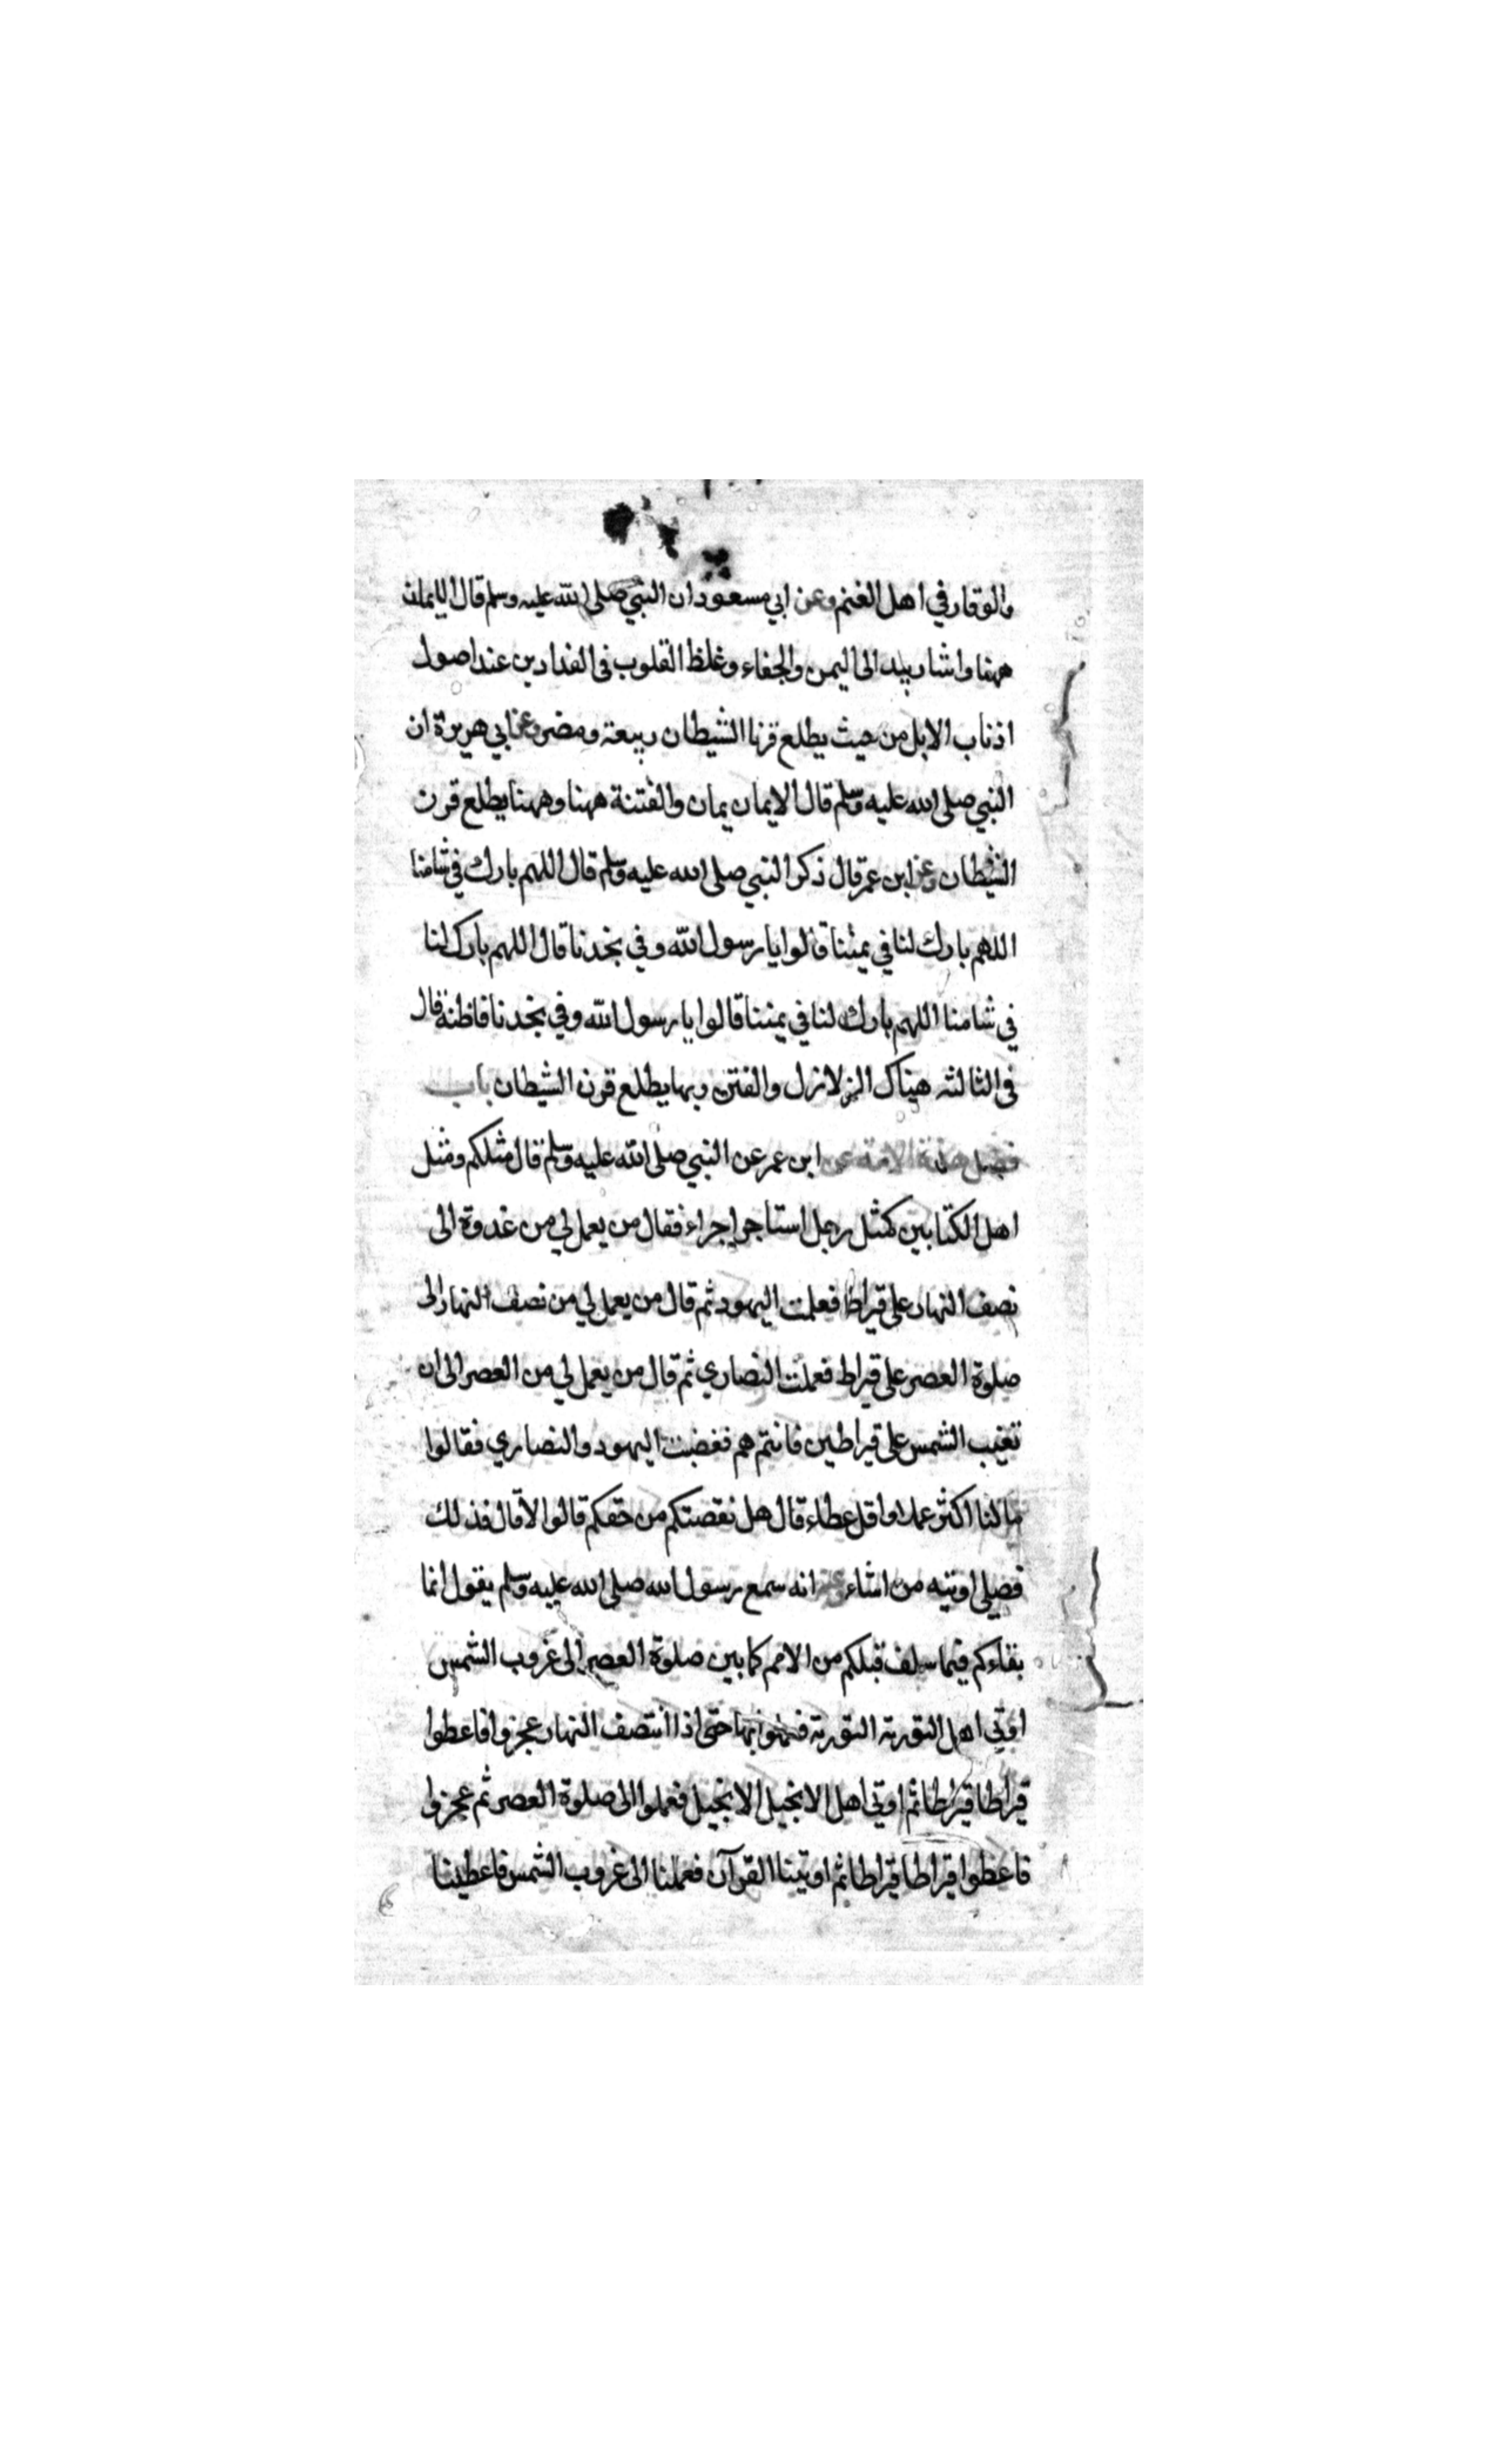 والوقار في اهل الغنم وعن ابي مسعود ان النبي صلى الله عليه وسلم قال الايمان
ههنا واشار بيده الى اليمن والجفاء وغلظ القلوب في الفدادين عند اصول
اذناب الابل من حيث يطلع قرنا الشيطان ربيعة ومضر وعن ابي هريرة ان
النبي صلى الله عليه وسلم قال الايمان يمان والفتنة ههنا وههنا يطلع قرن
الشيطان وعن ابن عمر قال ذكر النبي صلى الله عليه وسلم قال اللهم بارك في شامنا
اللهم بارك لنا في يمننا قالوا يا رسول الله وفي نجدنا قال اللهم بارك لنا
في شامنا اللهم بارك لنا في يمننا قالوا يا رسول الله وفي نجدنا فاظنه قال
في الثالثه هناك الزلازل والفتن وبها يطلع قرن الشيطان باب
فضل هذه الامة عن ابن عمر عن النبي صلى الله عليه وسلم قال مثلكم ومثل
اهل الكتابين كمثل رجل استاجر اجراء فقال من يعمل لي من غدوة الى
نصف النهار على قيراط فعملت اليهود ثم قال من يعمل لي من نصف النهار الى
صلوة العصر على قيراط فعملت النصاري ثم قال من يعمل لي من العصر الى ان
تغيب الشمس على قيراطين فانتم هم فغضبت اليهود والنصاري فقالوا
ما لنا اكثر عملا واقل عطاء قال هل نقصتكم من حقكم قالوا لا قال فذلك
فضلي اوتيه من اشاء وعنه انه سمع رسول الله صلى الله عليه وسلم يقول انما
بقاءكم فيما سلف قبلكم من الامم كما بين صلوة العصر الى غروب الشمس
اوتي اهل التورية التورية فعملوا بها حتى اذا انتصف النهار عجزوا فاعطوا
قيراطا قيراطا ثم اوتي اهل الانجيل الانجيل فعملوا الى صلوة العصر ثم عجزوا
فاعطوا قيراطا قيراطا ثم اوتينا القرآن فعملنا الى غروب الشمس فاعطينا